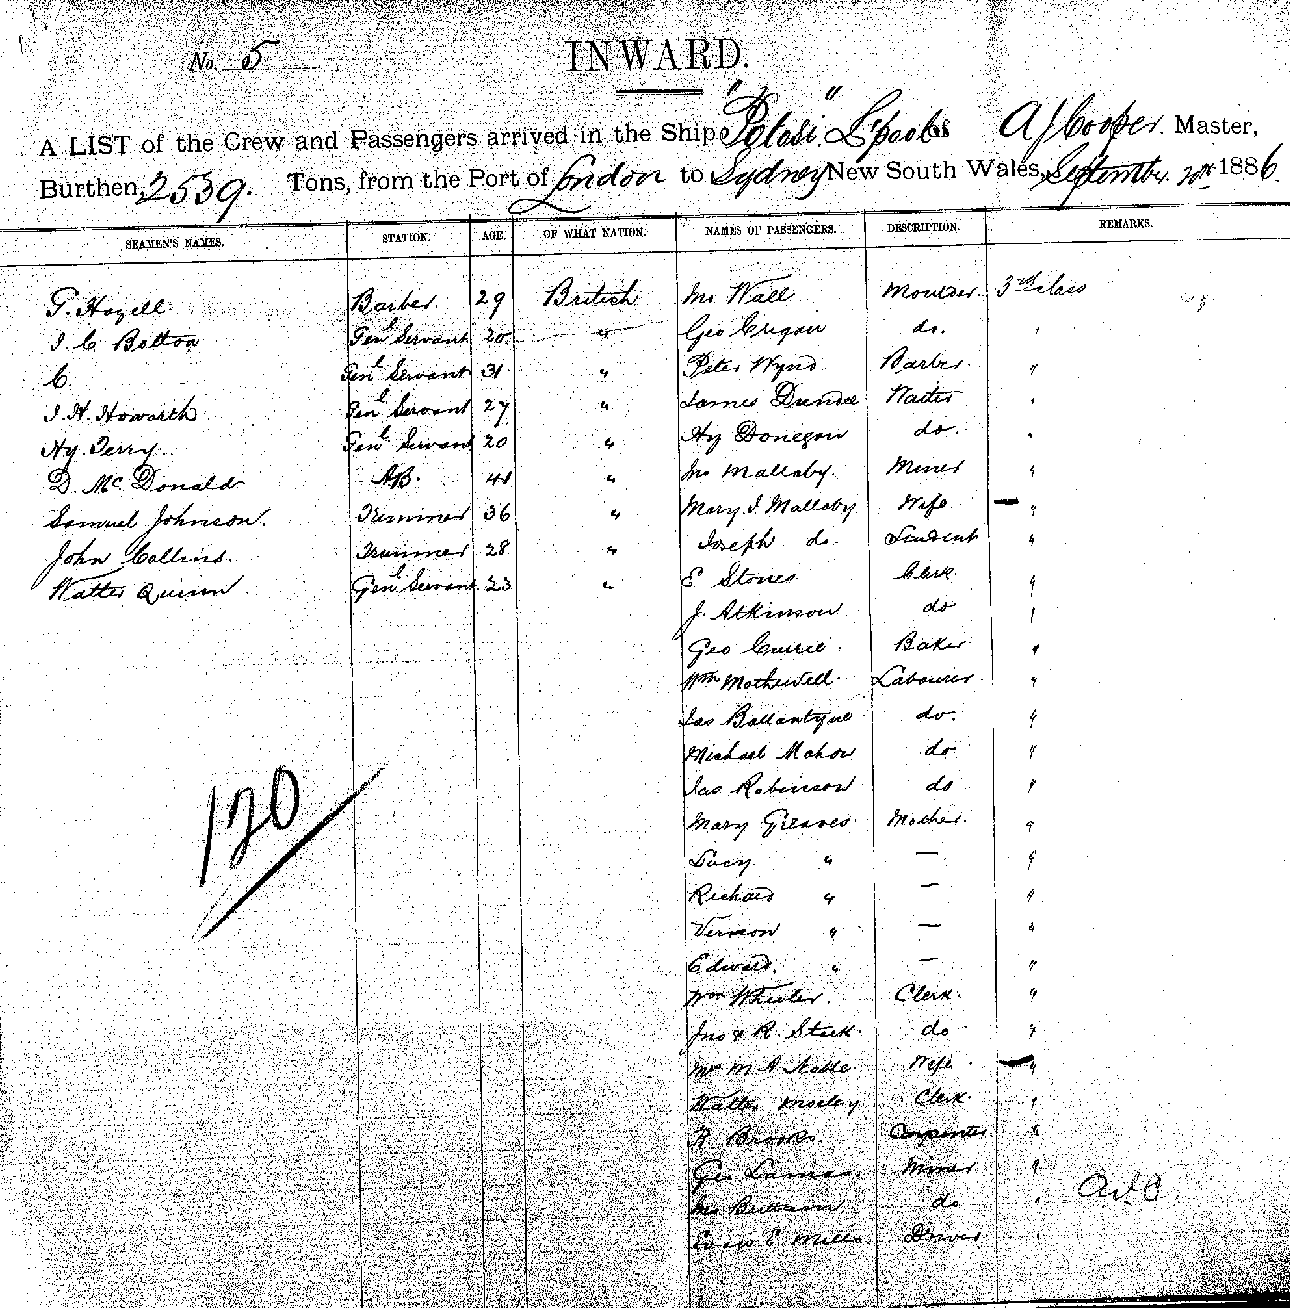 No. 5
INWARD.
A LIST of the Crew and Passengers arrived in the Ship "Potosi" L'pool of A J Cooper Master,
Burthen, 2539. Tons, from the Port of London to Sydney New South Wales, September 1886
SEAMEN'S NAMES. STATION. AGE. OF WHAT NATION. NAMES OF PASSENGERS. DESCRIPTION. REMARKS.
Hazell Barber 29 British Wall Moulder 3rd class
Genl Servant 20 " Geo do. "
C Genl Servant 31 " Peter Wynd Barber "
J. H. Howarth Genl Servant 27 " James Waiter "
Hy. Terry Genl Servant 20 " Hy Donegan do. "
D. McDonald AB. 41 " Jno Mallaby Miner "
Samuel Johnson. Trimmer 36 " Mary J. Mallaby Wife "
John Collins. Trimmer 28 " Joseph do "
Walter Quinn Genl Servant 23 " E Stones Clerk "
J. Atkinson do "
Geo Currie Baker "
Wm Mothewell Labourer "
Jas Ballantyne do. "
Michael Mahon do "
Jas Robinson do "
120
Mary Greaves Mother "
Lucy " — "
Richard " — "
Vernon " — "
Edward. " — "
Wm Wheeler. Clerk. "
do "
Wife "
Walter Moseley Clerk "
Brooks Carpenter "
Geo Miner "
do "
E Mills Driver